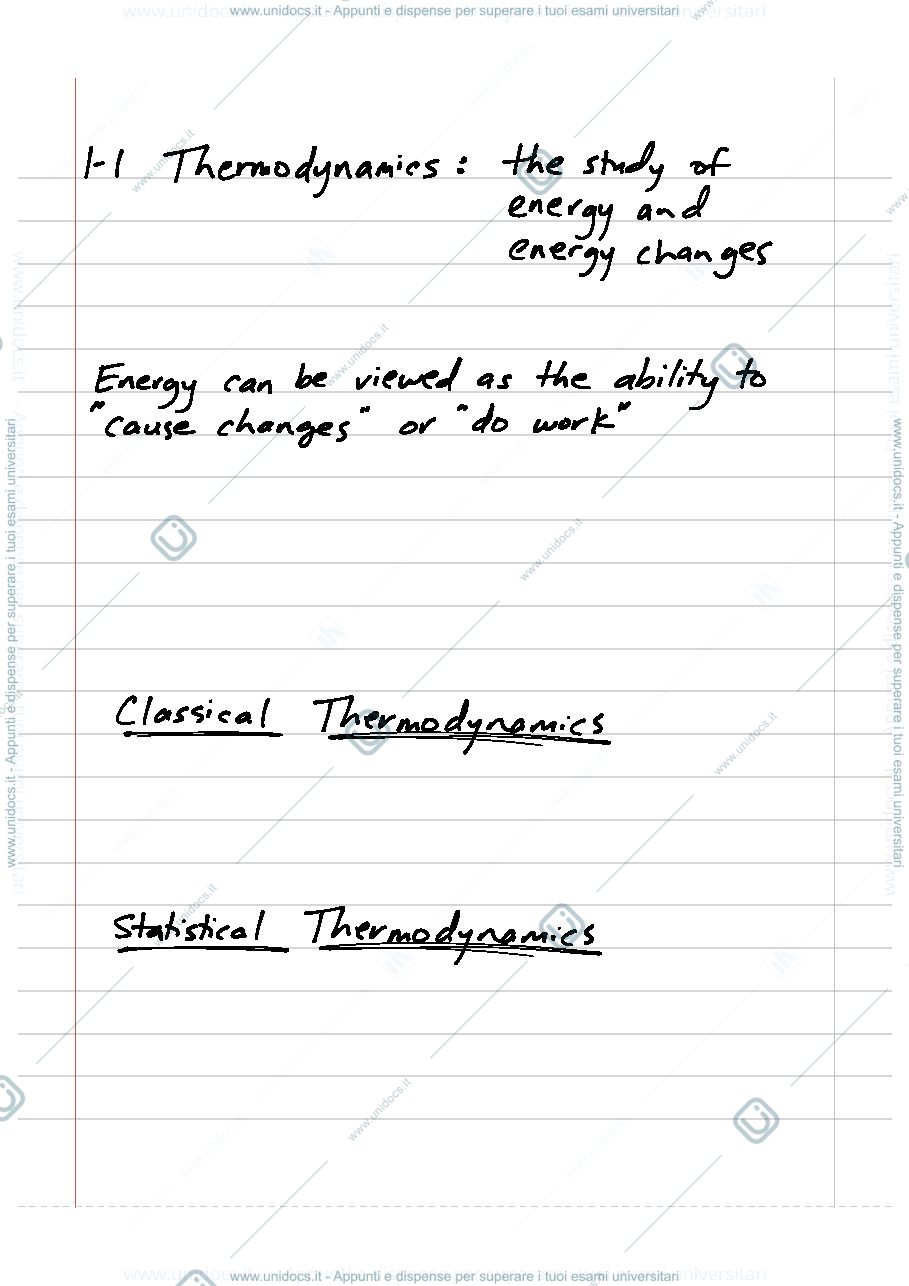 www.unidocs.it - Appunti e dispense per superare i tuoi esami universitari
1-1 Thermodynamics: the study of
energy and
energy changes
Energy can be viewed as the ability to
"cause changes" or "do work"
Classical Thermodynamics
Statistical Thermodynamics
www.unidocs.it - Appunti e dispense per superare i tuoi esami universitari
www.unidocs.it - Appunti e dispense per superare i tuoi esami universitari
www.unidocs.it - Appunti e dispense per superare i tuoi esami universitari
www.unidocs.it
www.unidocs.it
www.unidocs.it
www.unidocs.it
www.unidocs.it
www.unidocs.it